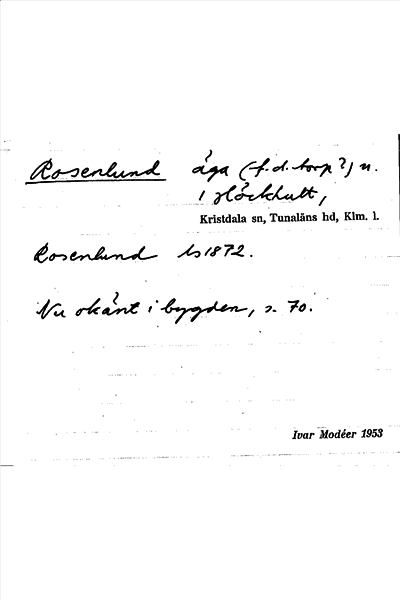 Rosenlund äga (f.d. torp?) n.
i Höckhult,
Kristdala sn, Tunaläns hd, Klm. l.
Rosenlund 1872.
Nu okänt i bygden, s. 70.
Ivar Modéer 1953